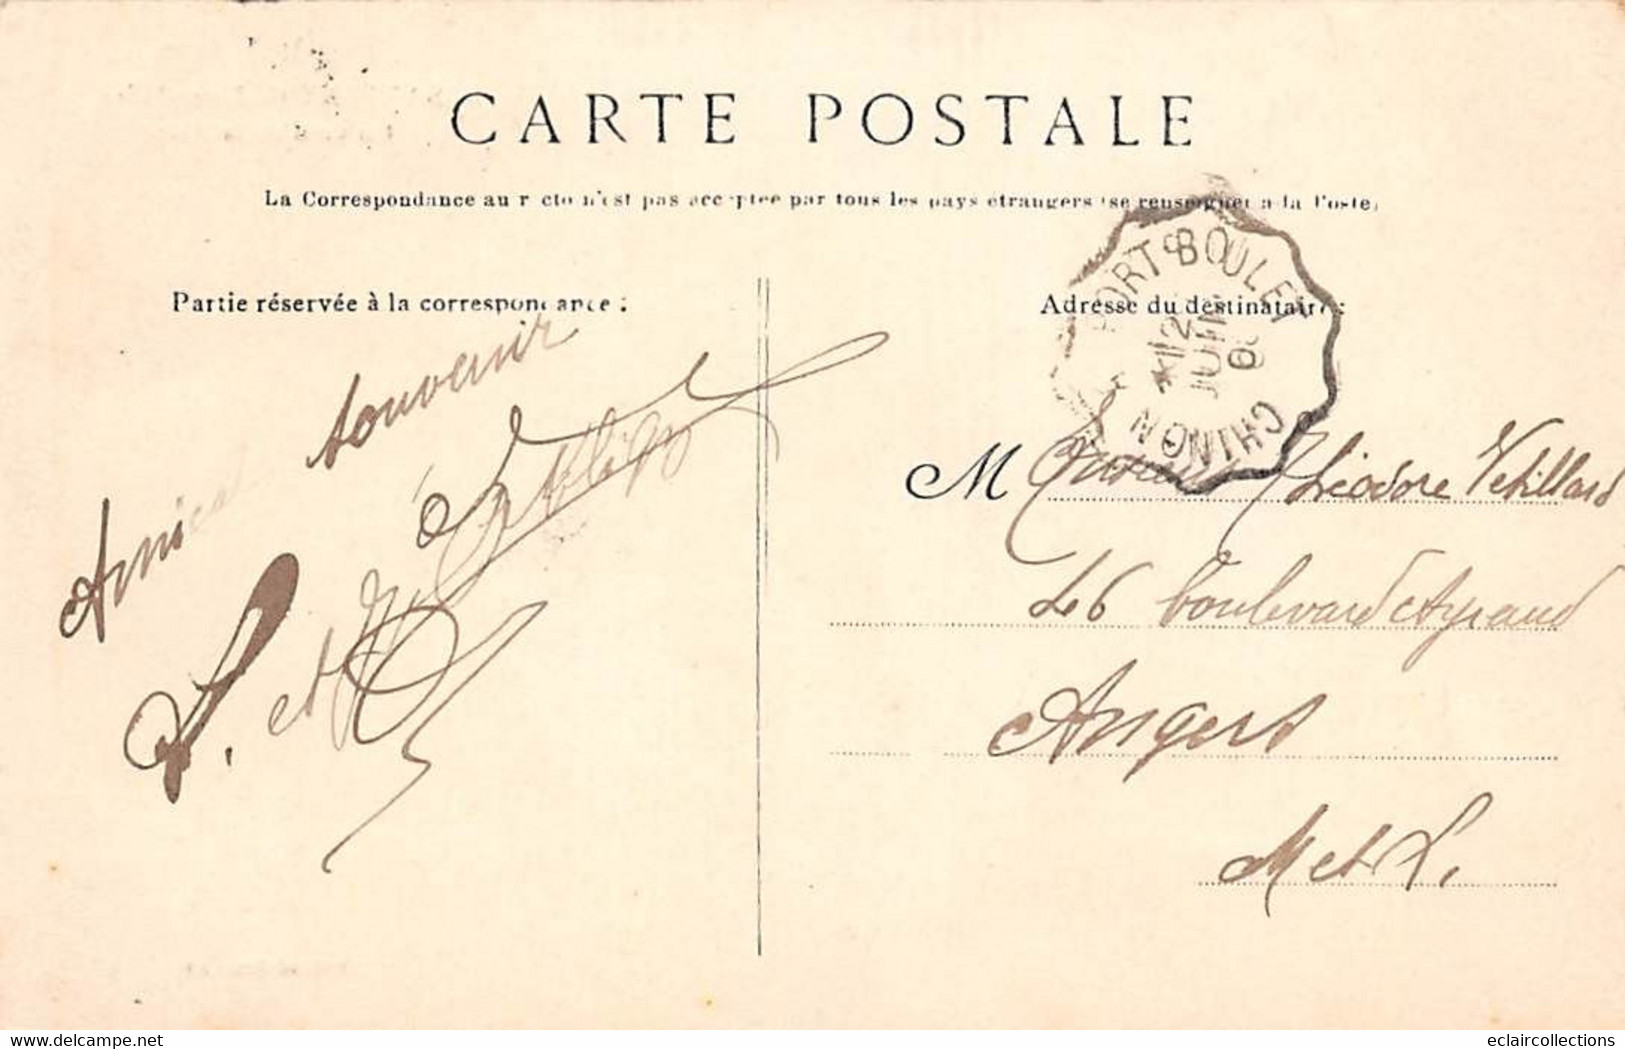 CARTE POSTALE
La Correspondance au recto n'est pas acceptée par tous les pays étrangers (se renseigner à la Poste)
Partie réservée à la correspondance :
Adresse du destinataire :
PORT BOULET
12
JUIN
CHINON
Amical souvenir
et
M Théodore Vétillard
46 boulevard Ayraud
Angers
M et L.
delcampe.com
eclaircollections